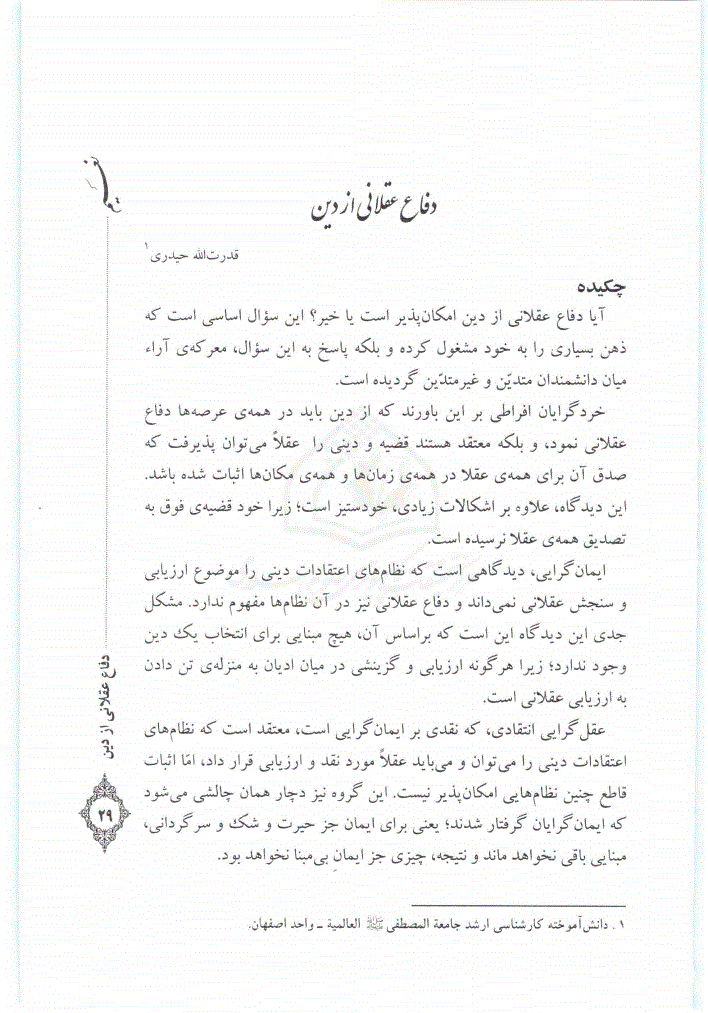 دفاع عقلانی از دین
قدرت‌الله حیدری۱
چکیده
آیا دفاع عقلانی از دین امکان‌پذیر است یا خیر؟ این سؤال اساسی است که
ذهن بسیاری را به خود مشغول کرده و بلکه پاسخ به این سؤال، معرکه‌ی آراء
میان دانشمندان متدیّن و غیرمتدّین گردیده است.
خردگرایان افراطی بر این باورند که از دین باید در همه‌ی عرصه‌ها دفاع
عقلانی نمود، و بلکه معتقد هستند قضیه و دینی را عقلاً می‌توان پذیرفت که
صدق آن برای همه‌ی عقلا در همه‌ی زمان‌ها و همه‌ی مکان‌ها اثبات شده باشد.
این دیدگاه، علاوه بر اشکالات زیادی، خودستیز است؛ زیرا خود قضیه‌ی فوق به
تصدیق همه‌ی عقلا نرسیده است.
ایمان‌گرایی، دیدگاهی است که نظام‌های اعتقادات دینی را موضوع ارزیابی
و سنجش عقلانی نمی‌داند و دفاع عقلانی نیز در آن نظام‌ها مفهوم ندارد. مشکل
جدی این دیدگاه این است که براساس آن، هیچ مبنایی برای انتخاب یک دین
وجود ندارد؛ زیرا هرگونه ارزیابی و گزینشی در میان ادیان به منزله‌ی تن دادن
به ارزیابی عقلانی است.
عقل‌گرایی انتقادی، که نقدی بر ایمان‌گرایی است، معتقد است که نظام‌های
اعتقادات دینی را می‌توان و می‌باید عقلاً مورد نقد و ارزیابی قرار داد، امّا اثبات
قاطع چنین نظام‌هایی امکان‌پذیر نیست. این گروه نیز دچار همان چالشی می‌شود
که ایمان‌گرایان گرفتار شدند؛ یعنی برای ایمان جز حیرت و شک و سرگردانی،
مبنایی باقی نخواهد ماند و نتیجه، چیزی جز ایمانِ بی‌مبنا نخواهد بود.
۱. دانش‌آموخته کارشناسی ارشد جامعة المصطفی ﷺ العالمیة ـ واحد اصفهان.
دفاع عقلانی از دین
۲۹